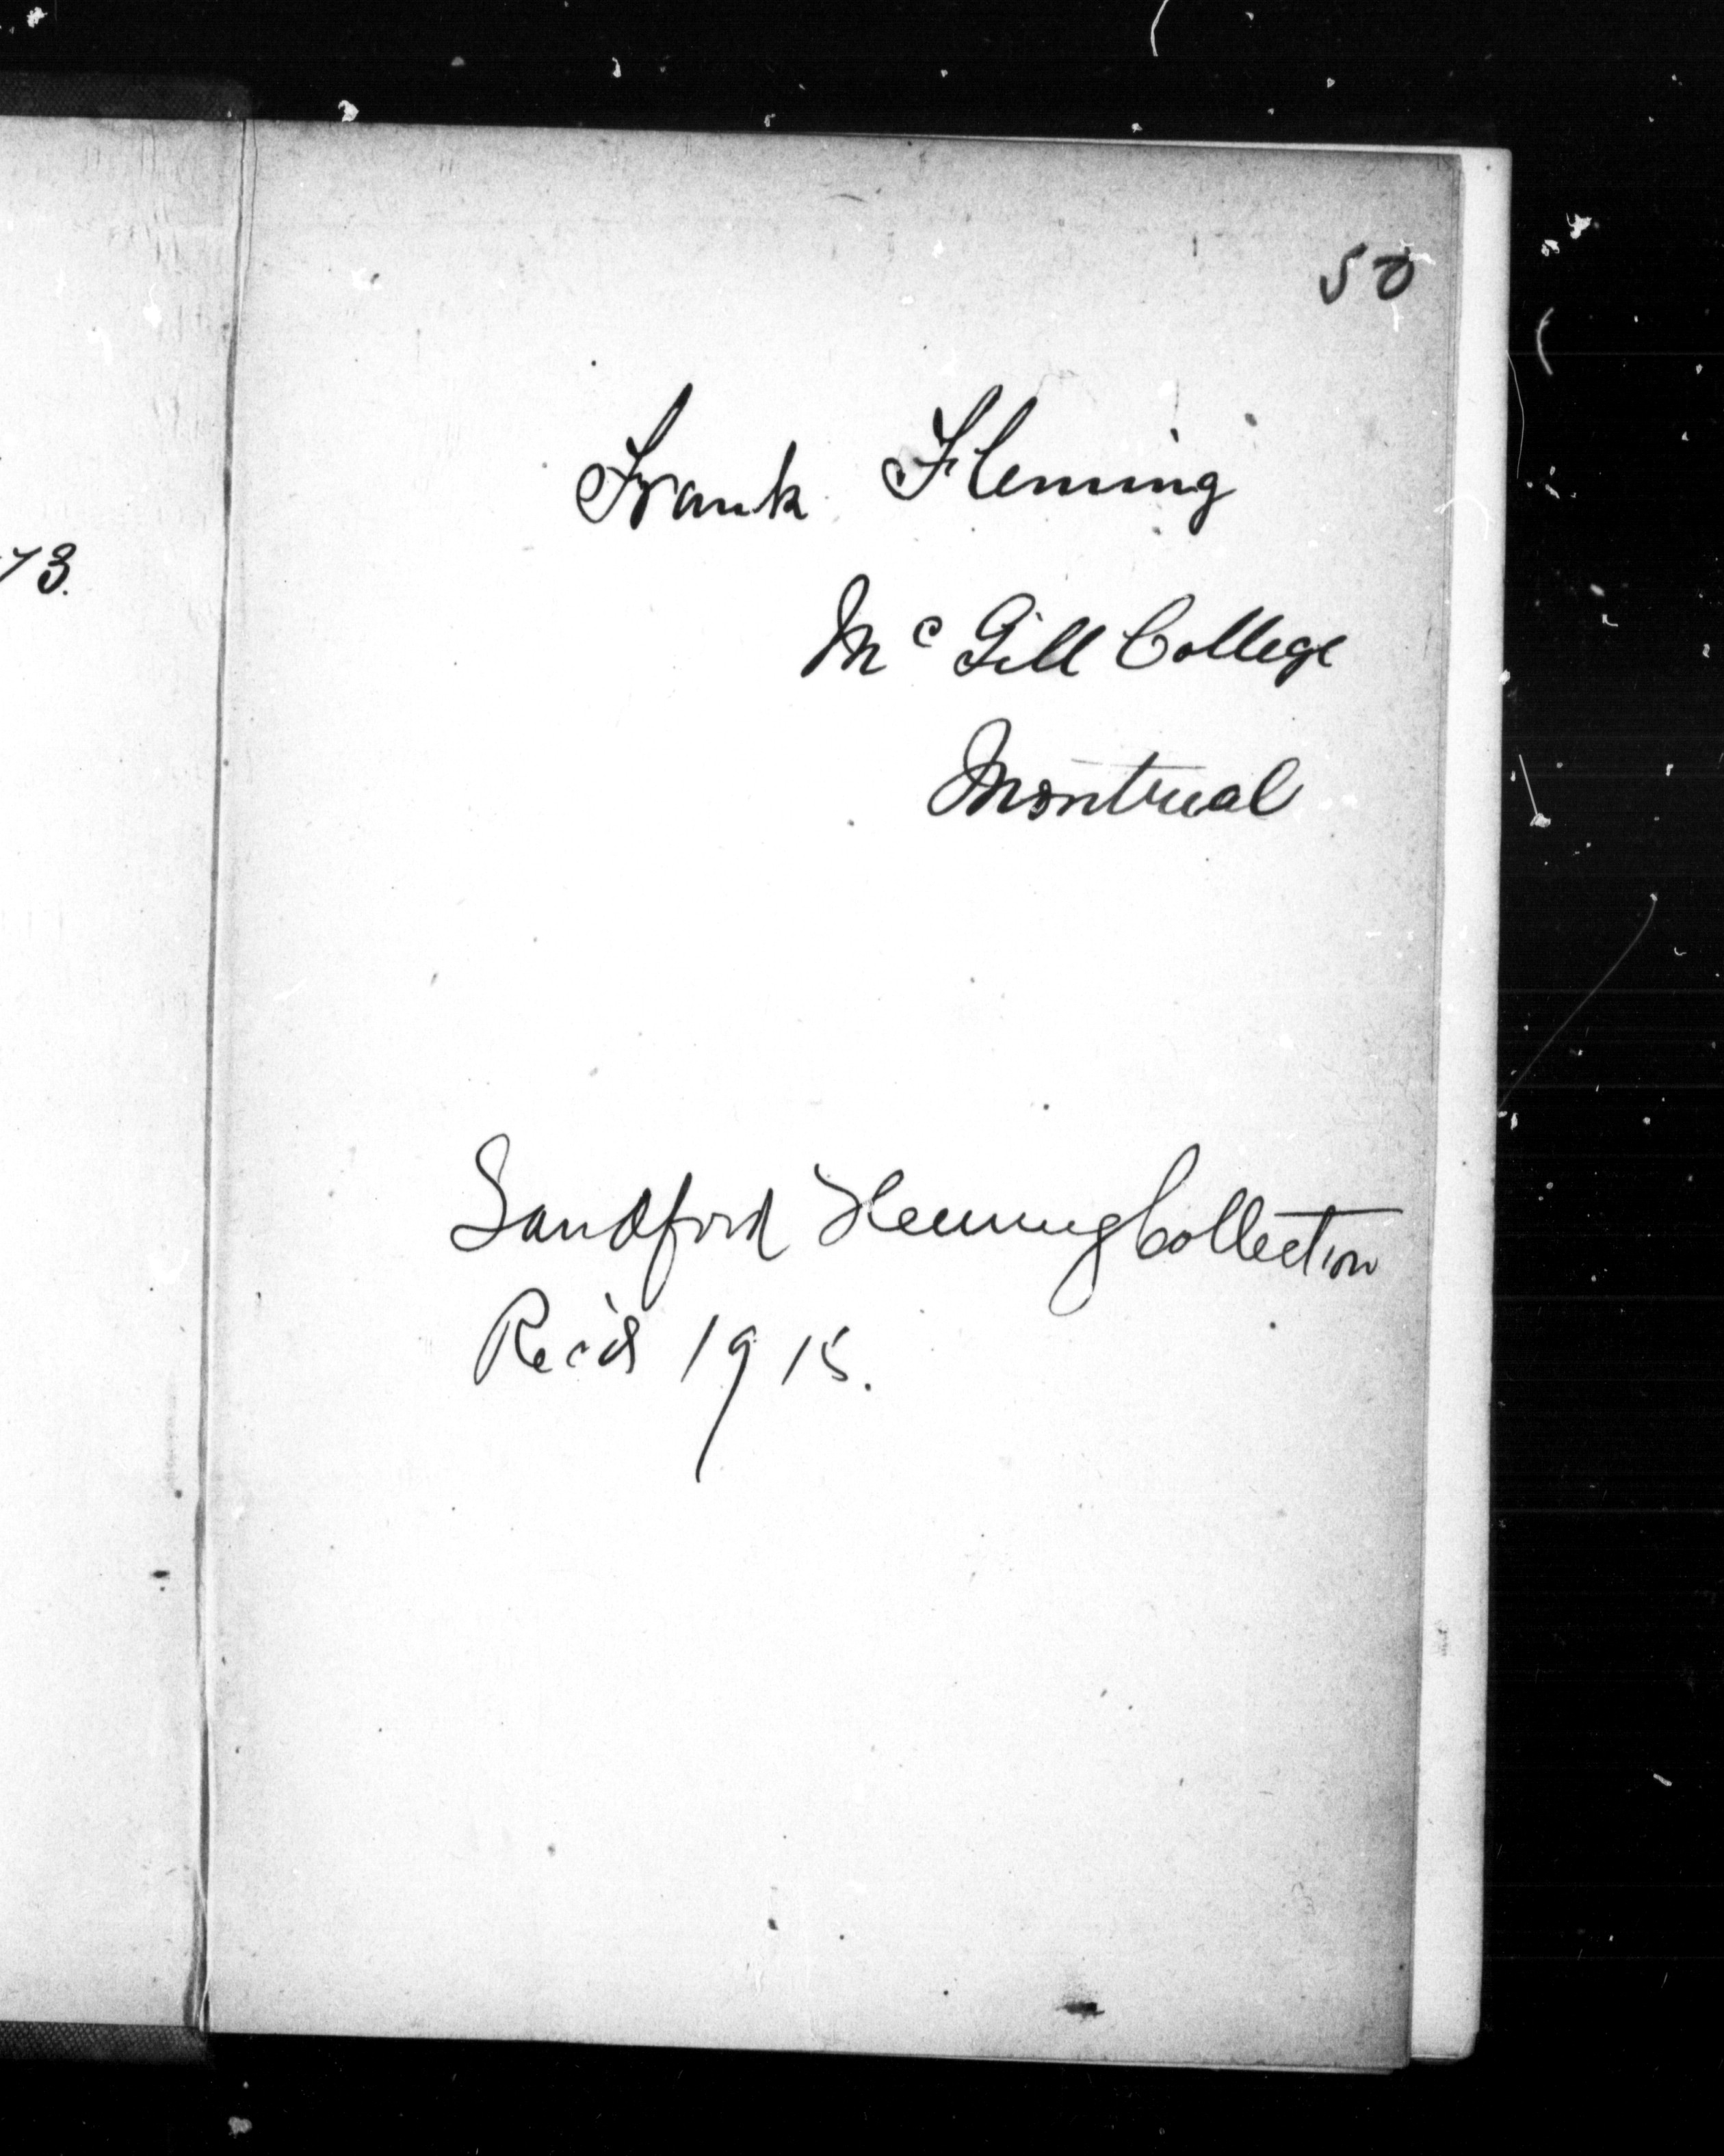 50
Frank Fleming
Mc Gill College
Montreal
73.
Sandford Fleming Collection
Rec'd 1915.